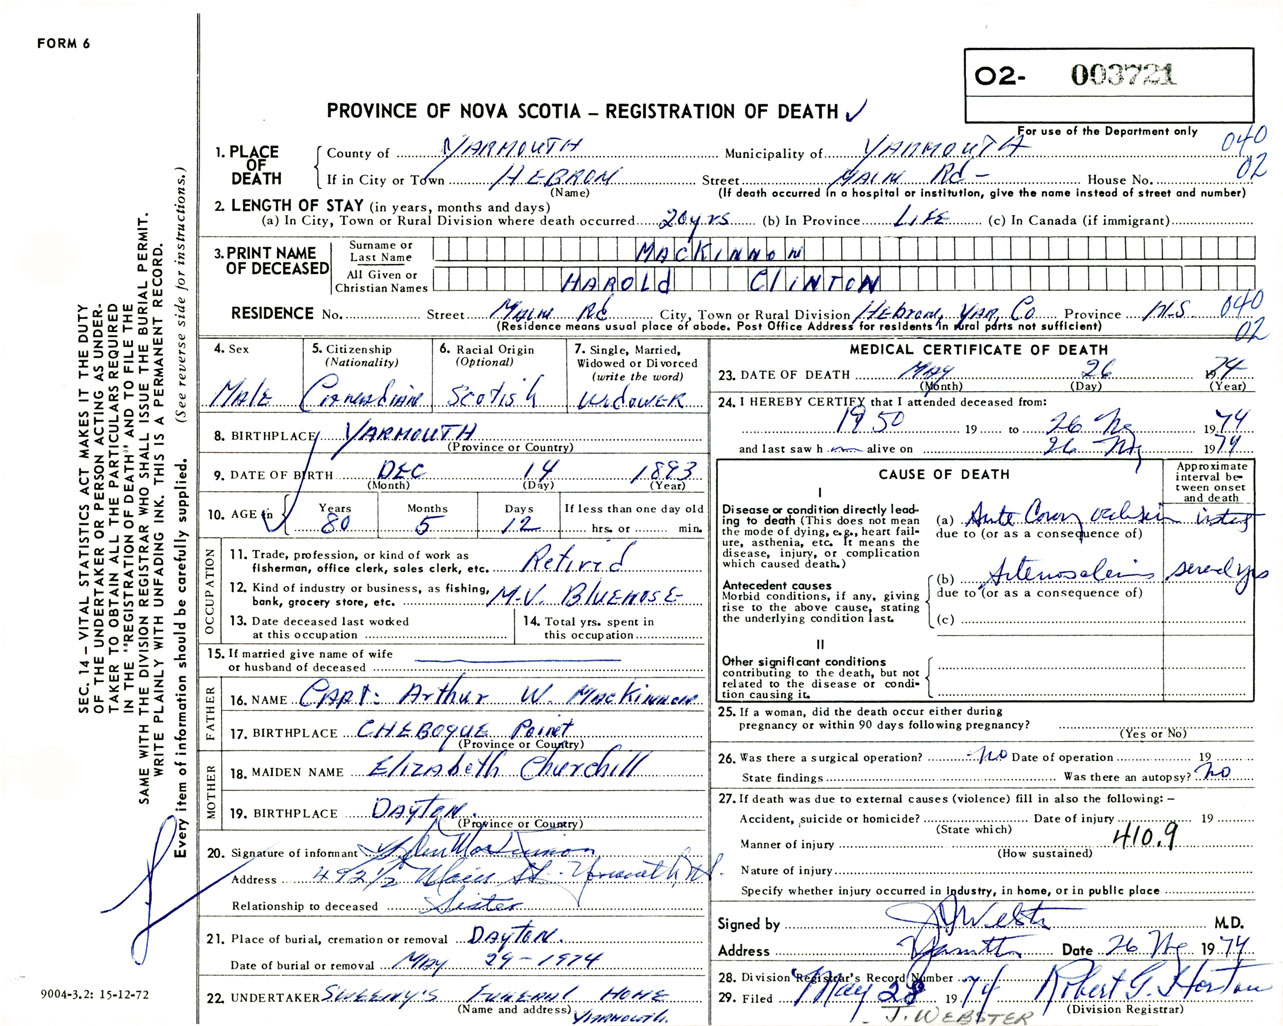 FORM 6
O2- 003721
PROVINCE OF NOVA SCOTIA – REGISTRATION OF DEATH ✓
For use of the Department only
040
02
1. PLACE OF DEATH
County of YARMOUTH Municipality of YARMOUTH
If in City or Town HEBRON Street MAIN Rd – House No.
(Name) (If death occurred in a hospital or institution, give the name instead of street and number)
2. LENGTH OF STAY (in years, months and days)
(a) In City, Town or Rural Division where death occurred 20 yrs (b) In Province LIFE (c) In Canada (if immigrant)
3. PRINT NAME OF DECEASED
Surname or Last Name MACKINNON
All Given or Christian Names HAROLD CLINTON
RESIDENCE No. Street MAIN Rd City, Town or Rural Division Hebron, Yar. Co Province N.S. 040
(Residence means usual place of abode. Post Office Address for residents in rural parts not sufficient) 02
4. Sex
Male
5. Citizenship
(Nationality)
Canadian
6. Racial Origin
(Optional)
Scotish
7. Single, Married,
Widowed or Divorced
(write the word)
WIDOWER
8. BIRTHPLACE YARMOUTH
(Province or Country)
9. DATE OF BIRTH DEC 14 1893
(Month) (Day) (Year)
10. AGE in
Years Months Days If less than one day old
80 5 12 hrs. or min.
OCCUPATION
11. Trade, profession, or kind of work as
fisherman, office clerk, sales clerk, etc. Retired
12. Kind of industry or business, as fishing,
bank, grocery store, etc. M.V. BLUENOSE
13. Date deceased last worked
at this occupation
14. Total yrs. spent in
this occupation
15. If married give name of wife
or husband of deceased
FATHER
16. NAME CAPT. Arthur W. MacKinnon
17. BIRTHPLACE CHEBOGUE Point
(Province or Country)
MOTHER
18. MAIDEN NAME Elizabeth Churchill
19. BIRTHPLACE DAYTON.
(Province or Country)
20. Signature of informant MacKinnon
Address 492 1/2 Main St. Yarmouth, N.S.
Relationship to deceased Sister
21. Place of burial, cremation or removal DAYTON.
Date of burial or removal MAY 29 – 1974
22. UNDERTAKER SWEENY'S FUNERAL HOME
(Name and address) YARMOUTH.
MEDICAL CERTIFICATE OF DEATH
23. DATE OF DEATH MAY 26 1974
(Month) (Day) (Year)
24. I HEREBY CERTIFY that I attended deceased from:
1950 19 to 26 My 1974
and last saw h alive on 26 My 1974
CAUSE OF DEATH
Approximate
interval be-
tween onset
and death
I
Disease or condition directly lead-
ing to death (This does not mean
the mode of dying, e.g., heart fail-
ure, asthenia, etc. It means the
disease, injury, or complication
which caused death.)
(a) Acute Coron occlusion
due to (or as a consequence of)
Antecedent causes
Morbid conditions, if any, giving
rise to the above cause, stating
the underlying condition last.
(b) several yrs
due to (or as a consequence of)
(c)
II
Other significant conditions
contributing to the death, but not
related to the disease or condi-
tion causing it.
25. If a woman, did the death occur either during
pregnancy or within 90 days following pregnancy?
(Yes or No)
26. Was there a surgical operation? no Date of operation 19
State findings Was there an autopsy? no
27. If death was due to external causes (violence) fill in also the following: –
Accident, suicide or homicide? Date of injury 19
(State which)
410.9
Manner of injury
(How sustained)
Nature of injury
Specify whether injury occurred in industry, in home, or in public place
Signed by J Webster M.D.
Address Yarmouth Date 26 My 1974
28. Division Registrar's Record Number
29. Filed May 28 1974 Robert G. Horton
(Division Registrar)
- J. WEBSTER
SEC. 14 – VITAL STATISTICS ACT MAKES IT THE DUTY
OF THE UNDERTAKER OR PERSON ACTING AS UNDER-
TAKER TO OBTAIN ALL THE PARTICULARS REQUIRED
IN THE "REGISTRATION OF DEATH" AND TO FILE THE
SAME WITH THE DIVISION REGISTRAR WHO SHALL ISSUE THE BURIAL PERMIT.
WRITE PLAINLY WITH UNFADING INK. THIS IS A PERMANENT RECORD.
Every item of information should be carefully supplied. (See reverse side for instructions.)
9004-3.2: 15-12-72